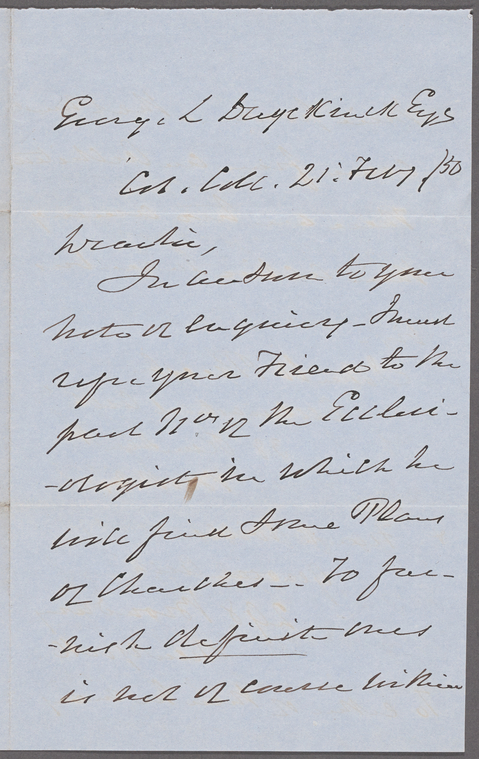 George L Duyckinck Esqr
Col. Coll. 21: Feby /50
Dear Sir,
In answer to your
note of enquiry - I must
refer your Friend to the
past Nos. of the Ecclesi-
-ologist in which he
will find some Plans
of Churches -. To fur-
-nish definite ones
is not of course within